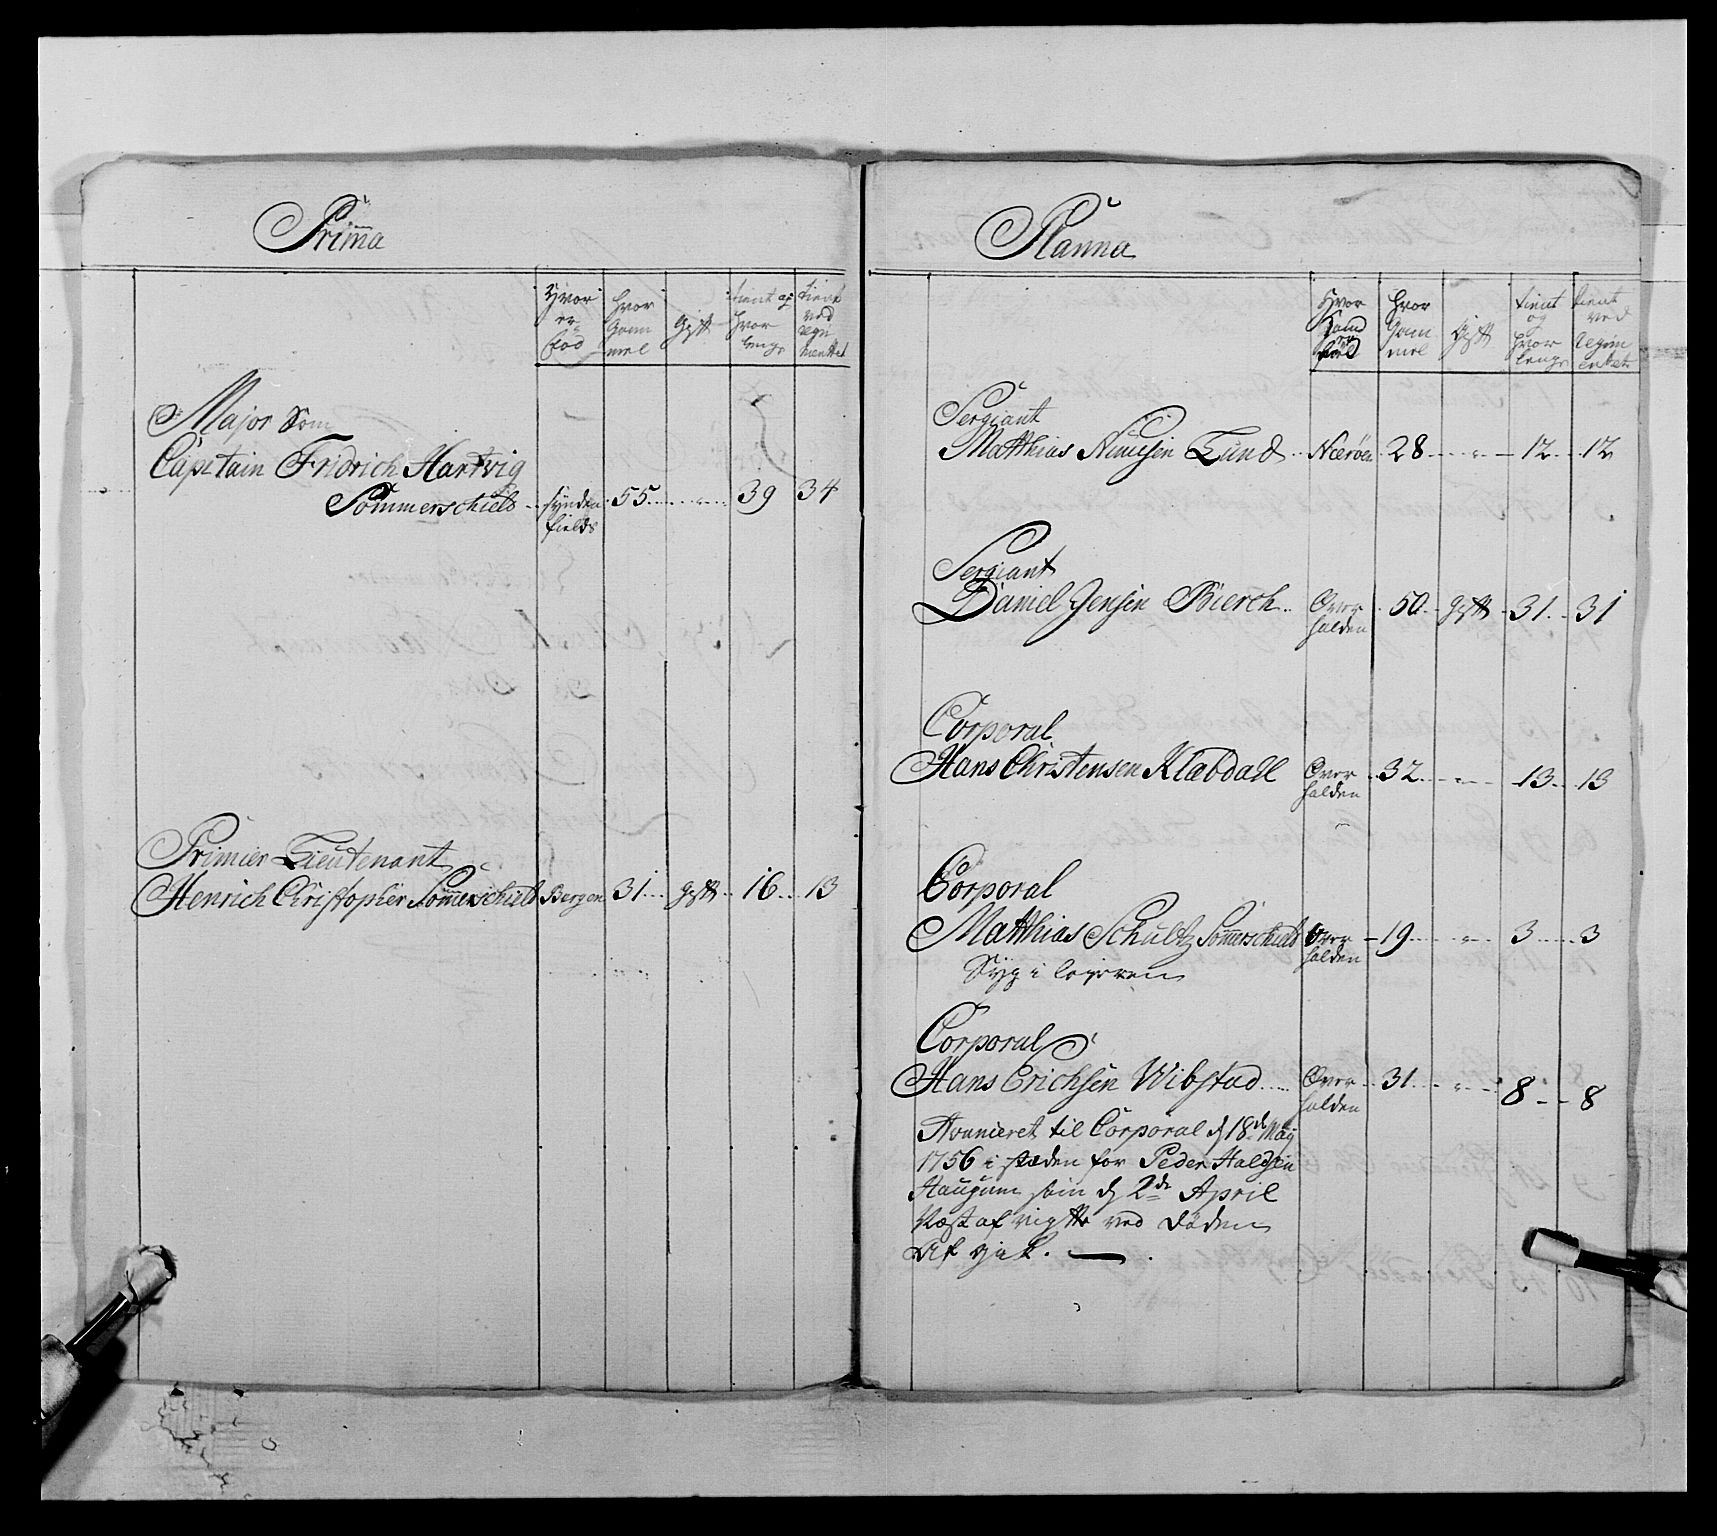 Prima
Hvor er fød
hvor Gammel
Gift
tient og hvor lenge
tient ved regimentet
Major Som
Capetain Fridrich Hartvig
Sommerschield synden fields 55 " 39 34
Primier Lieutenant
Henrich Christopher Sommerschield Bergen 31 gift 16 13
Planna
Hvor
hvor Gammel
Gift
tient og hvor lenge
tient ved regimentet
Sergiant
Matthias Nilsen Lund Nærøen 28 " 12 12
Sergiant
Daniel Jensen Bierch Over halden 50 gift 31 31
Corporal
Hans Christensen Klabdall Over halden 32 " 13 13
Corporal
Matthias Schultz Sommerschield Over halden 19 " 3 3
Syg i lejeren
Corporal
Hans Erichsen Wibstad Over halden 31 " 8 8
Avanceret til Corporal d 18de Maij
1756 i stæden for Peder Haldsen
Haugum som d 2de April
Næst af vigtte ved Døden
Af gik.